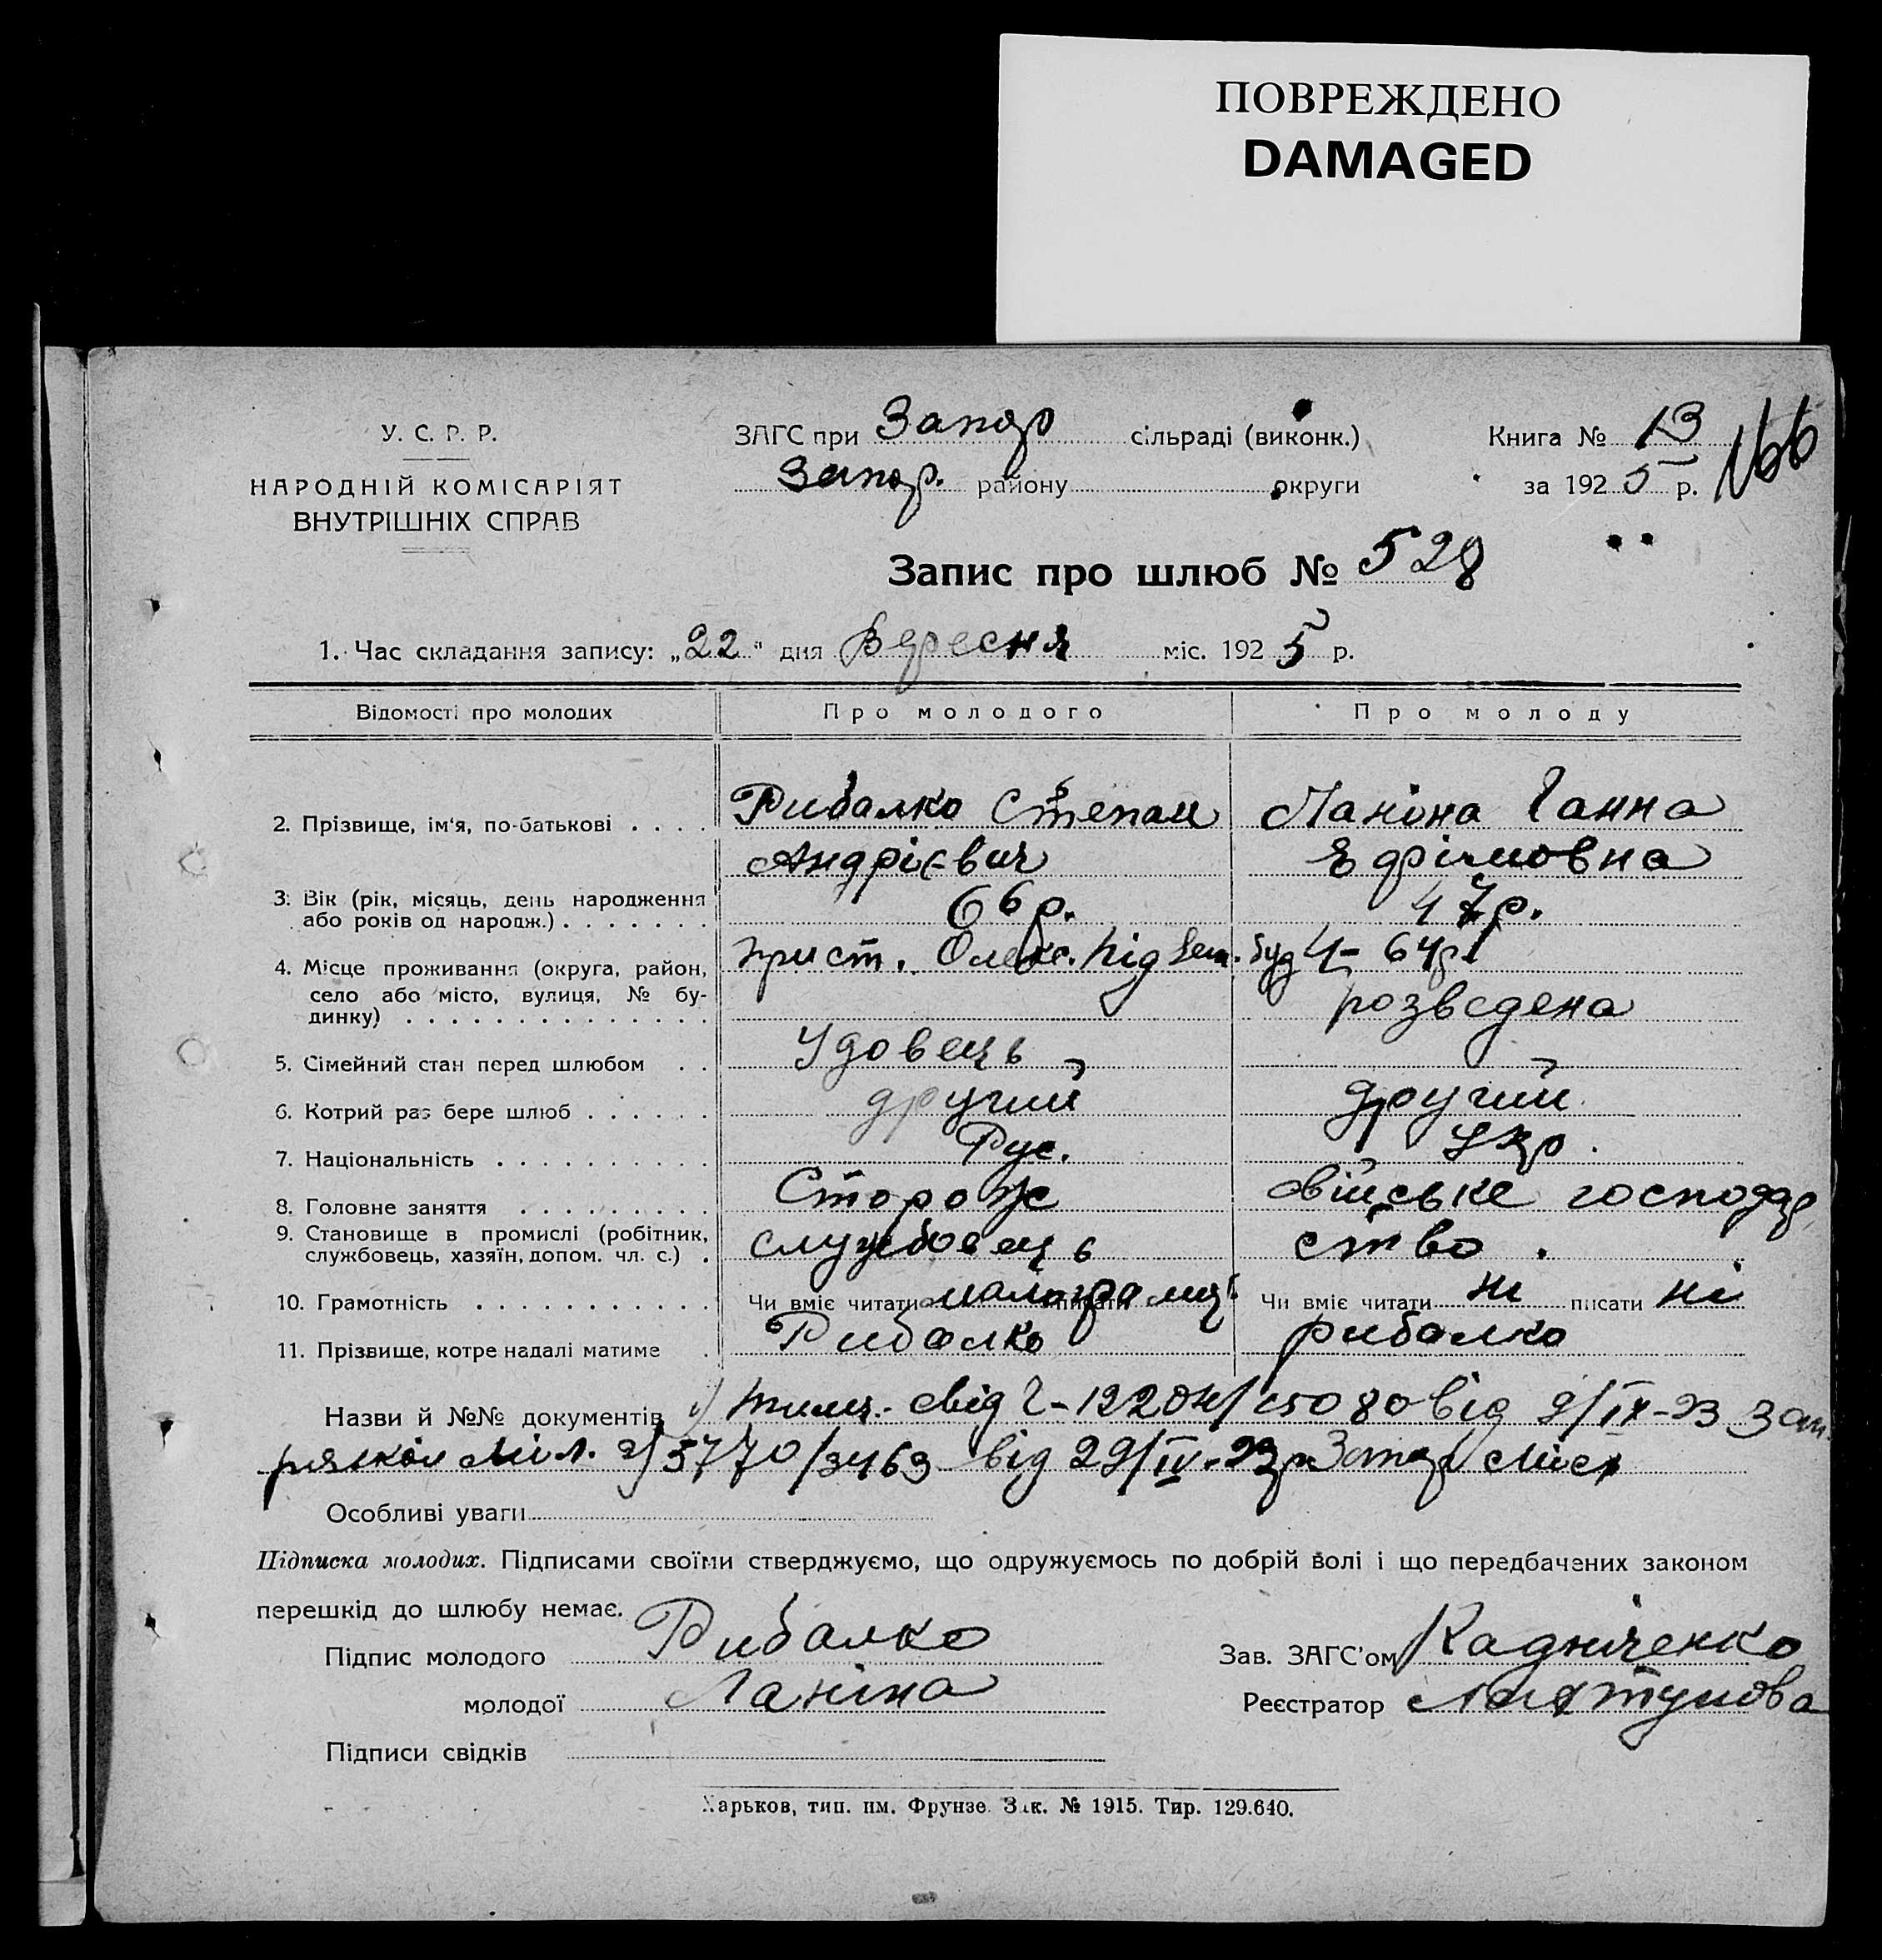 ПОВРЕЖДЕНО
DAMAGED
У. С. Р. Р.
НАРОДНІЙ КОМІСАРІЯТ
ВНУТРІШНІХ СПРАВ
ЗАГС при Запор сільраді (виконк.)
Запор. району округи
Книга № 13
за 1925 р.
166
Запис про шлюб № 528
1. Час складання запису: „22" дня Вересня міс. 1925 р.
Відомості про молодих Про молодого Про молоду
2. Прізвище, ім'я, по-батькові . . . . Рибалко Степан Ланіна Ганна
Андрієвич Єфімовна
3. Вік (рік, місяць, день народження
або років од народж.) . . . . . . . 66 р. 47 р.
4. Місце проживання (округа, район,
село або місто, вулиця, № бу-
динку) . . . . . . . . . . . . . .
прист. Олекс. буд Ч- 64
розведена
5. Сімейний стан перед шлюбом . . Удовець
6. Котрий раз бере шлюб . . . . . . другий другий
7. Національність . . . . . . . . . . Рус. Укр.
8. Головне заняття . . . . . . . . . Сторож свійське господар
9. Становище в промислі (робітник,
службовець, хазяїн, допом. чл. с.) . службовець ство.
10. Грамотність . . . . . . . . . . . Чи вміє читати писати Чи вміє читати ні писати ні
11. Прізвище, котре надалі матиме . Рибалко рибалко
Назви й №№ документів 1/ тимч. свід від 9/IX-23 Зап.
Міл. 2/ 5770/3463 від 29/IV-23р Запор Міск
Особливі уваги
Підписка молодих. Підписами своїми стверджуємо, що одружуємось по добрій волі і що передбачених законом
перешкід до шлюбу немає.
Підпис молодого Рибалко Зав. ЗАГС'ом
молодої Ланіна Реєстратор
Підписи свідків
Харьков, тип. им. Фрунзе. Зак. № 1915. Тир. 129.640.